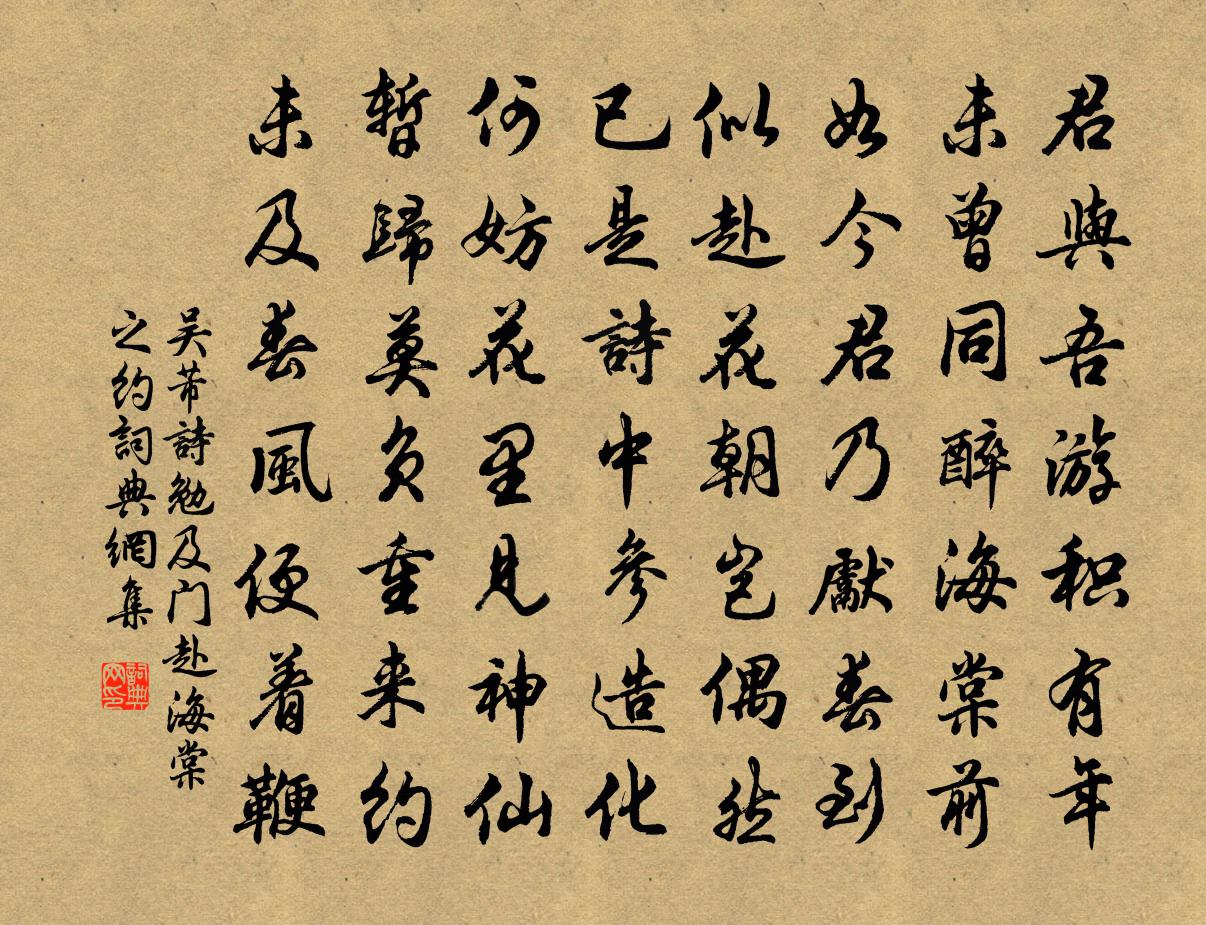 君與吾游积有年
未曾同醉海棠前
如今君乃獻春到
似赴花朝岂偶然
已是詩中參造化
何妨花里見神仙
暫歸莫负重来約
未及春風便着鞭
吴芾詩勉及门赴海棠
之約詞典網集
詞典
网印